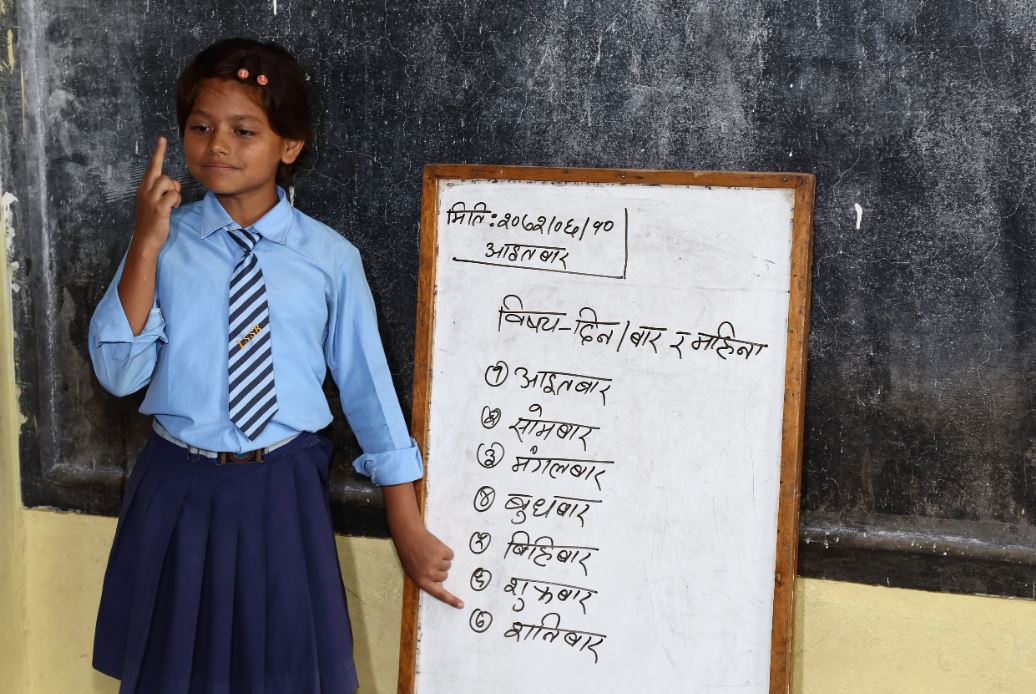 मिति: २०७२/०६/१०
आइतबार
विषय-दिन/बार र महिना
१ आइतबार
२ सोमबार
३ मंगलबार
४ बुधबार
५ बिहिबार
६ शुक्रबार
७ शनिबार